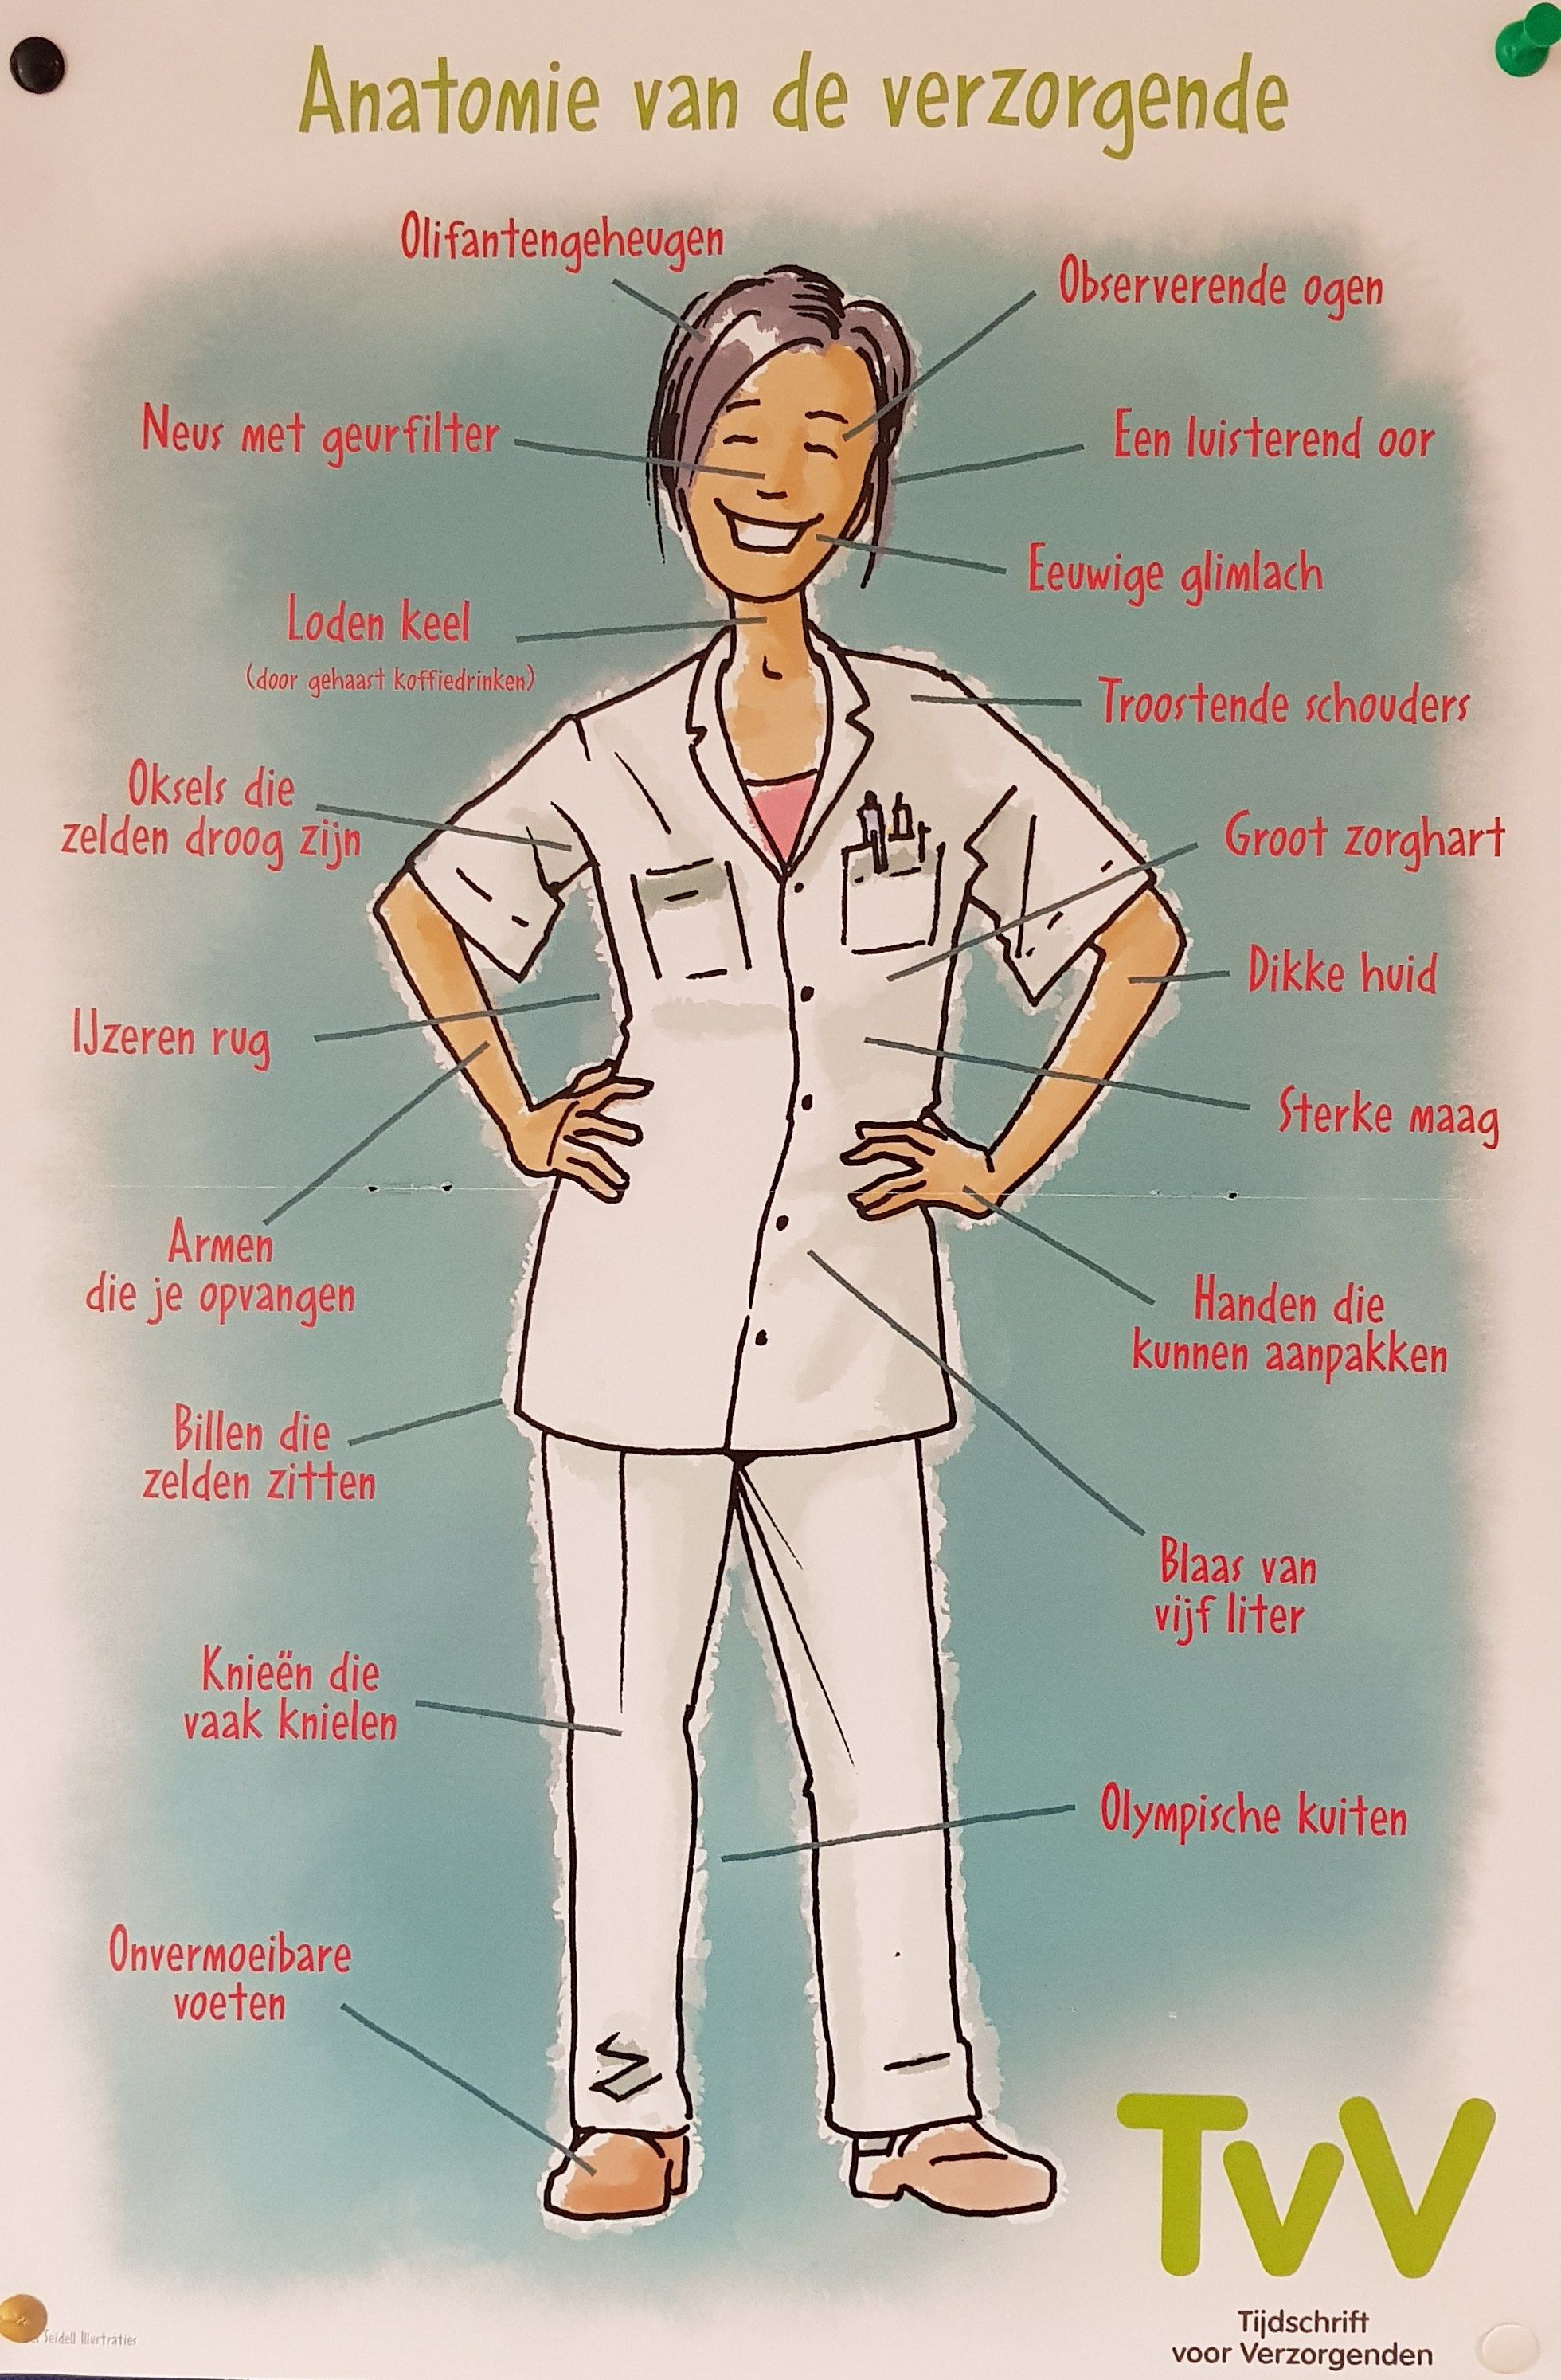 Anatomie van de verzorgende
Olifantengeheugen
Observerende ogen
Neus met geurfilter
Een luisterend oor
Eeuwige glimlach
Loden keel
(door gehaast koffiedrinken)
Troostende schouders
Oksels die
zelden droog zijn
Groot zorghart
Dikke huid
IJzeren rug
Sterke maag
Armen
die je opvangen
Handen die
kunnen aanpakken
Billen die
zelden zitten
Blaas van
vijf liter
Knieën die
vaak knielen
Olympische kuiten
Onvermoeibare
voeten
TvV
Tijdschrift
voor Verzorgenden
Seidell Illustraties